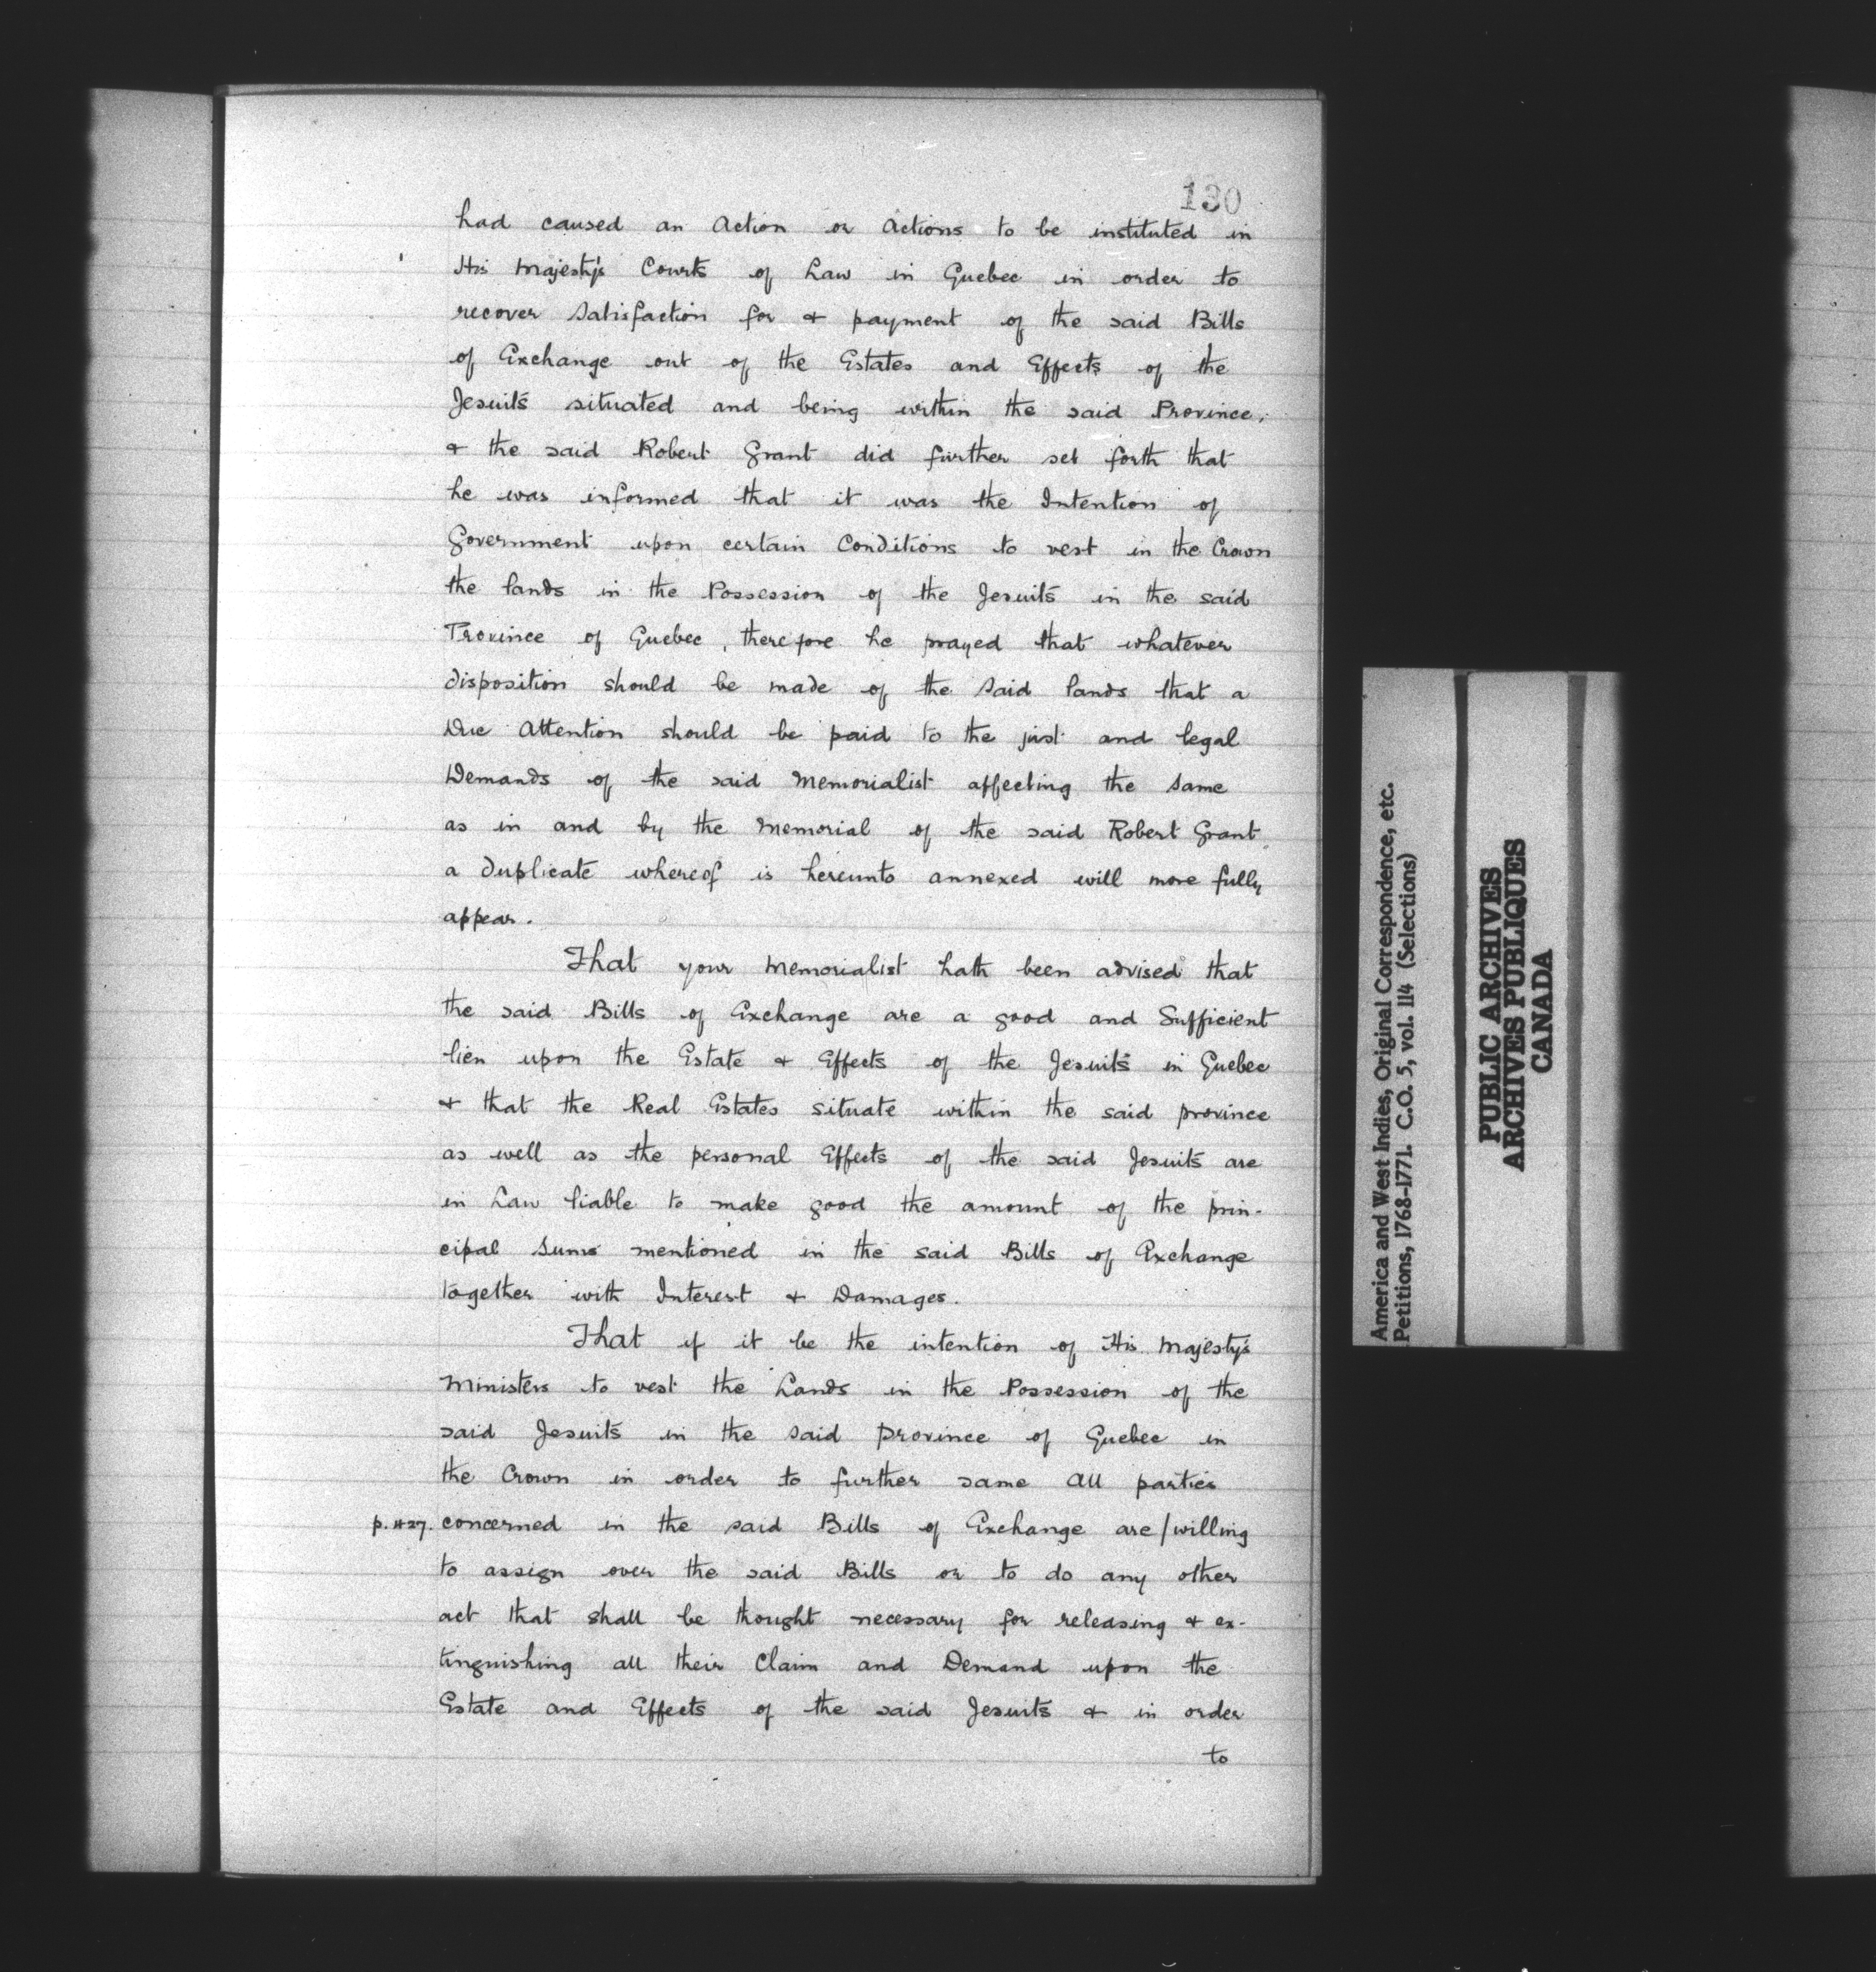 130
had caused an Action or Actions to be instituted in
His Majesty's Courts of Law in Quebec in order to
recover Satisfaction for & payment of the said Bills
of Exchange out of the Estates and Effects of the
Jesuits situated and being within the said Province;
& the said Robert Grant did further set forth that
he was informed that it was the Intention of
Government upon certain Conditions to vest in the Crown
the lands in the Possession of the Jesuits in the said
Province of Quebec, therefore he prayed that whatever
disposition should be made of the said lands that a
Due Attention should be paid to the just and legal
Demands of the said Memorialist affecting the same
as in and by the Memorial of the said Robert Grant,
a duplicate whereof is hereunto annexed will more fully
appear.
That your Memorialist hath been advised that
the said Bills of Exchange are a good and Sufficient
lien upon the Estate & Effects of the Jesuits in Quebec
& that the Real Estates situate within the said province
as well as the personal Effects of the said Jesuits are
in Law liable to make good the amount of the prin-
cipal sums mentioned in the said Bills of Exchange
together with Interest & Damages.
That if it be the intention of His Majesty's
Ministers to vest the Lands in the Possession of the
said Jesuits in the said Province of Quebec in
the Crown in order to further same all parties
p. 427. concerned in the said Bills of Exchange are/willing
to assign over the said Bills or to do any other
act that shall be thought necessary for releasing & ex-
tinguishing all their Claim and Demand upon the
Estate and Effects of the said Jesuits & in order
to
America and West Indies, Original Correspondence, etc.
Petitions, 1768-1771. C.O. 5, vol. 114 (Selections)
PUBLIC ARCHIVES
ARCHIVES PUBLIQUES
CANADA